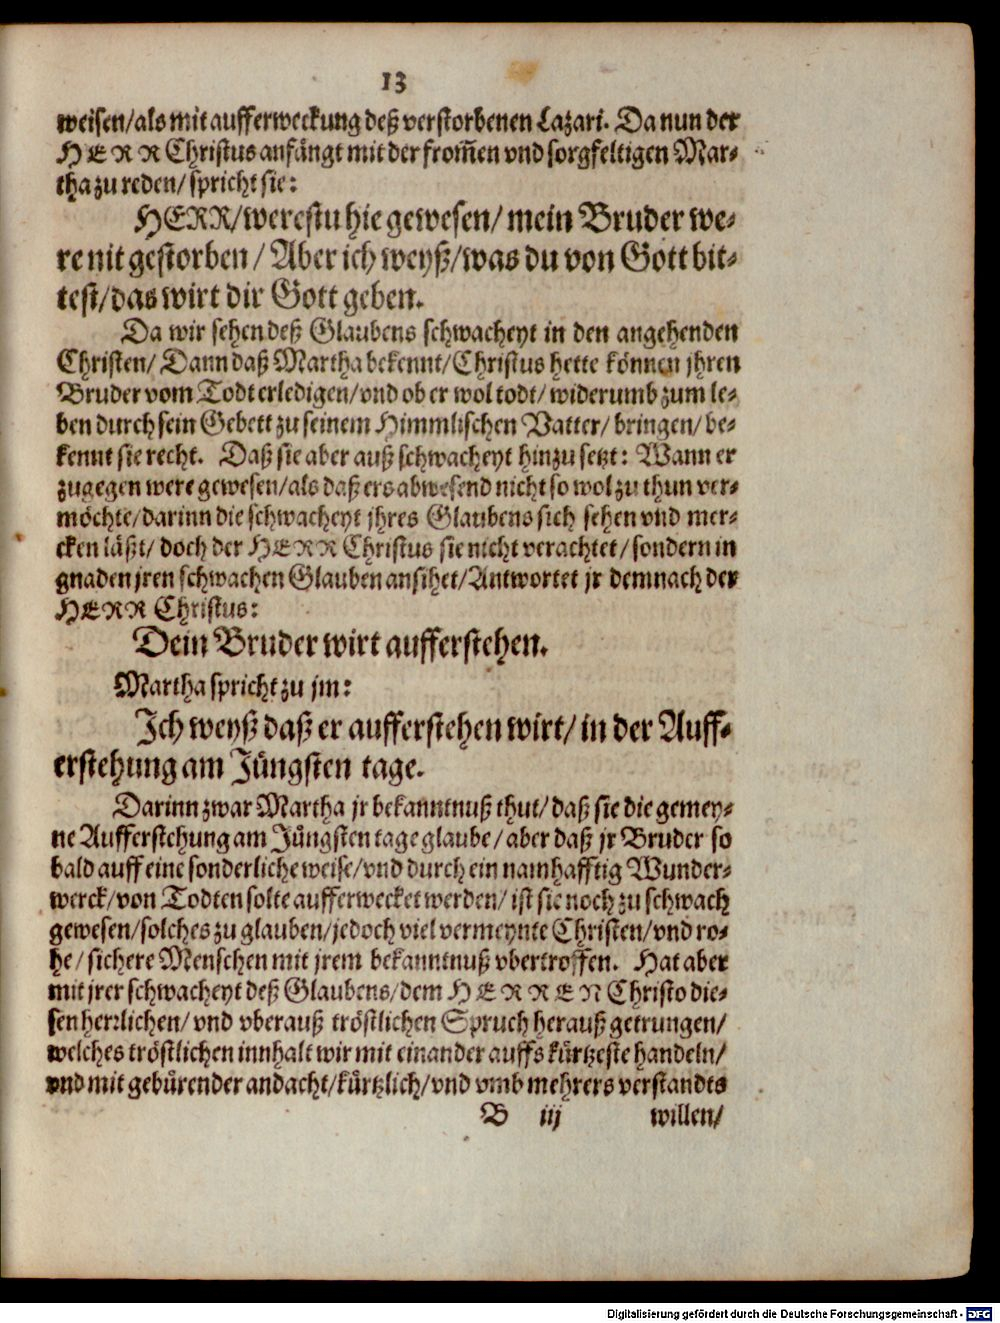 13
weisen/als mit aufferweckung deß verstorbenen Lazari. Da nun der
HERR Christus anfängt mit der from̃en vnd sorgfeltigen Mar-
tha zu reden/ spricht sie:
HERR/ werestu hie gewesen/ mein Bruder we-
re nit gestorben/ Aber ich weyß/ was du von Gott bit-
test/ das wirt dir Gott geben.
Da wir sehen deß Glaubens schwacheyt in den angehenden
Christen/ Dann daß Martha bekennt/ Christus hette können jhren
Bruder vom Todt erledigen/ vnd ob er wol todt/ widerumb zum le-
ben durch sein Gebett zu seinem Himmlischen Vatter/ bringen/ be-
kennt sie recht. Daß sie aber auß schwacheyt hinzu setzt: Wann er
zugegen were gewesen/ als daß ers abwesend nicht so wol zu thun ver-
möchte/ darinn die schwacheyt jhres Glaubens sich sehen vnd mer-
cken läßt/ doch der HERR Christus sie nicht verachtet/ sondern in
gnaden jren schwachen Glauben ansihet/ Antwortet jr demnach der
HERR Christus:
Dein Bruder wirt aufferstehen.
Martha spricht zu jm:
Ich weyß daß er aufferstehen wirt/ in der Auff-
erstehung am Jüngsten tage.
Darinn zwar Martha jr bekanntnuß thut/ daß sie die gemey-
ne Aufferstehung am Jüngsten tage glaube/ aber daß jr Bruder so
bald auff eine sonderliche weise/ vnd durch ein namhafftig Wunder-
werck/ von Todten solte aufferwecket werden/ ist sie noch zu schwach
gewesen/ solches zu glauben/ jedoch viel vermeynte Christen/ vnd ro-
he/ sichere Menschen mit jrem bekanntnuß vbertroffen. Hat aber
mit jrer schwacheyt deß Glaubens/ dem HERREN Christo die-
sen herrlichen/ vnd vberauß tröstlichen Spruch herauß getrungen/
welches tröstlichen innhalt wir mit einander auffs kürtzeste handeln/
vnd mit gebürender andacht/ kürtzlich/ vnd vmb mehrers verstandts
B iij willen/
Digitalisierung gefördert durch die Deutsche Forschungsgemeinschaft - DFG